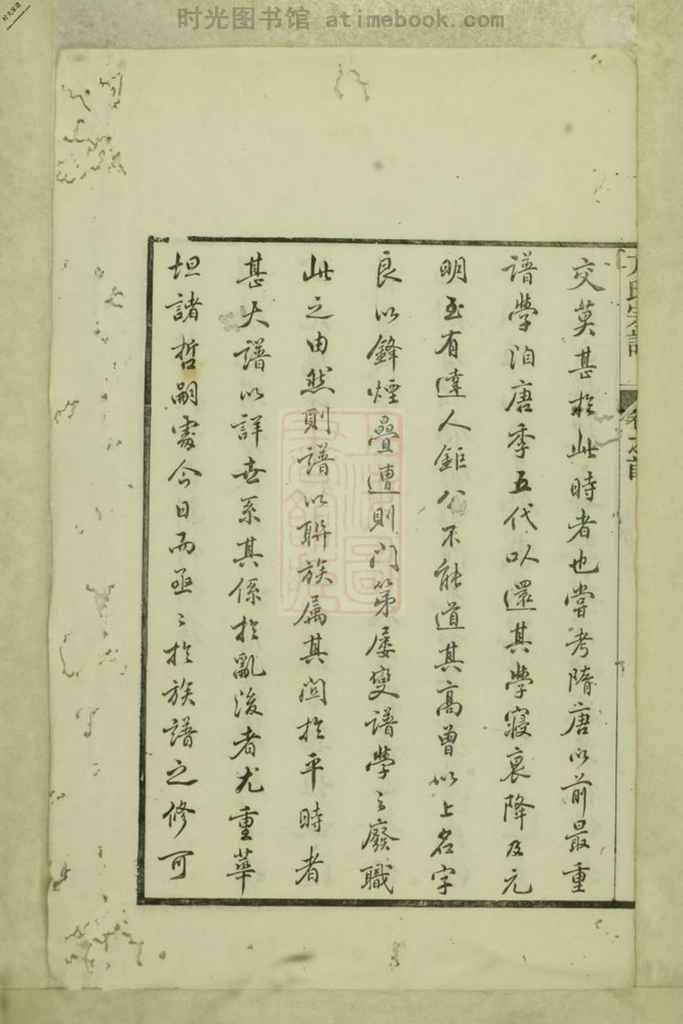 时光图书馆 atimebook.com
交莫甚於此時者也嘗考隋唐以前最重
譜學洎唐季五代以還其學寢衰降及元
明至有達人鉅公不能道其高曾以上名字
良以鋒煙疊遭則門第屢變譜學之廢職
此之由然則譜以聯族属其関於平時者
甚大譜以詳世系其係於亂後者尤重華
坦諸哲嗣處今日而亟亟於族譜之修可